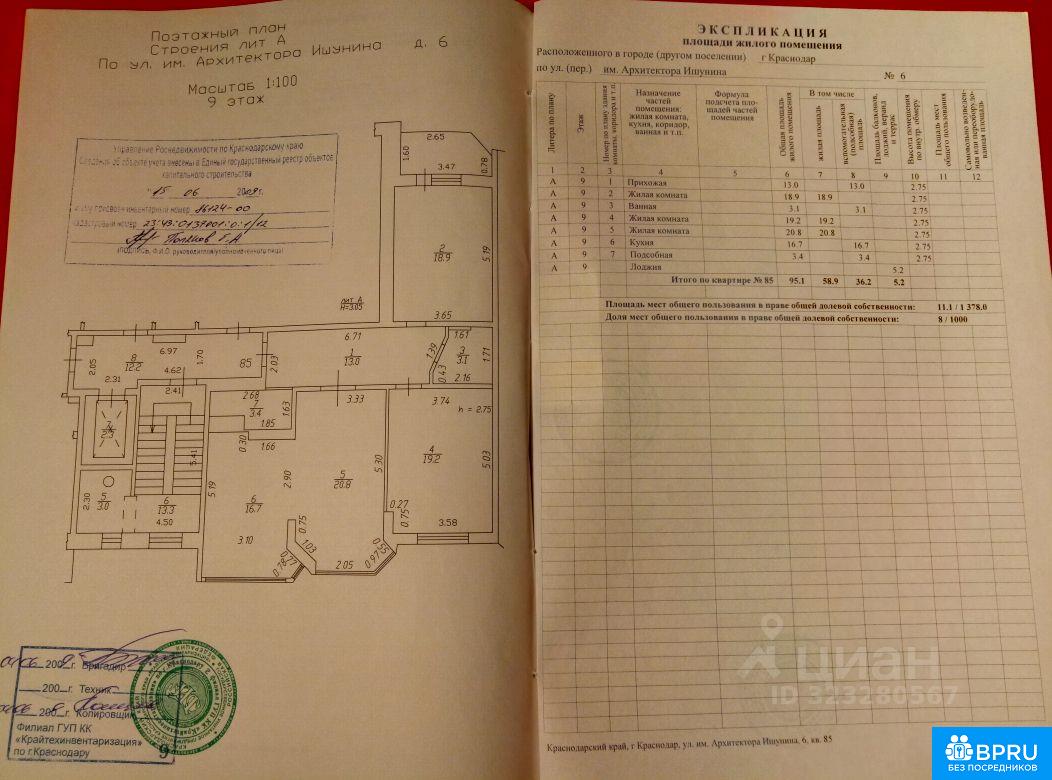 Поэтажный план
Строения лит А
По ул. им. Архитектора Ишунина д. 6
Масштаб 1:100
9 этаж
Управление Роснедвижимости по Краснодарскому краю
Сведения об объекте учета внесены в Единый государственный реестр объектов
капитального строительства
"15 06 2009г.
инвентарный номер 86124-00
кадастровый номер 23:43:0137001:0:1/12
Поляков Г.А
(ПОДПИСЬ, Ф.И.О. руководителя/уполномоченного лица)
2.65
1.60
3.47
0.78
2
18.9
5.19
лит А
H=3.05
3.65
6.71
1.67
6.97
2.05
8
12.2
1.70
85
2.03
1
13.0
1.39
3
3.1
1.71
4.62
0.43
2.16
2.31
2.41
2.68
3.33
3.74
7
3.4
1.63
h = 2.75
1.85
7
2.3
0.30
1.66
5.41
4
19.2
5.03
5.30
5
20.8
2.90
5.19
2.30
5
3.0
6
13.3
6
16.7
0.27
4.50
0.75
0.75
3.58
3.10
1.03
0.55
0.77
0.97
0.78
2.05
200 г. Бригадир
200 г. Техник
200 г. Копировщик
Филиал ГУП КК
«Крайтехинвентаризация»
по г.Краснодару
9
ЭКСПЛИКАЦИЯ
площади жилого помещения
Расположенного в городе (другом поселении) г Краснодар
по ул. (пер.) им. Архитектора Ишунина № 6
Литера по плану
Этаж
Номер по плану здания комнаты, коридора и т.п.
Назначение частей помещения: жилая комната, кухня, коридор, ванная и т.п.
Формула подсчета площадей частей помещения
Общая площадь жилого помещения
В том числе
жилая площадь
вспомогательная (подсобная) площадь
Площадь балконов, лоджий, веранд и террас
Высота помещения по внутр. обмеру
Площадь мест общего пользования
Самовольно возведенная или переоборудованная площадь
1 2 3 4 5 6 7 8 9 10 11 12
А 9 1 Прихожая 13.0 13.0 2.75
А 9 2 Жилая комната 18.9 18.9 2.75
А 9 3 Ванная 3.1 3.1 2.75
А 9 4 Жилая комната 19.2 19.2 2.75
А 9 5 Жилая комната 20.8 20.8 2.75
А 9 6 Кухня 16.7 16.7 2.75
А 9 7 Подсобная 3.4 3.4 2.75
А 9 Лоджия 5.2
Итого по квартире № 85 95.1 58.9 36.2 5.2
Площадь мест общего пользования в праве общей долевой собственности: 11.1 / 1 378.0
Доля мест общего пользования в праве общей долевой собственности: 8 / 1000
циан
ID:323280567
Краснодарский край, г Краснодар, ул. им. Архитектора Ишунина, 6, кв. 85
BPRU
БЕЗ ПОСРЕДНИКОВ